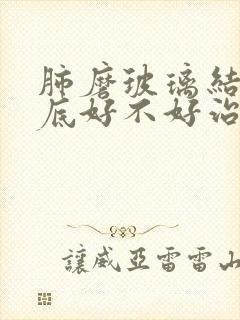 肺磨玻璃结
底好不好治
让威亚雷雷山